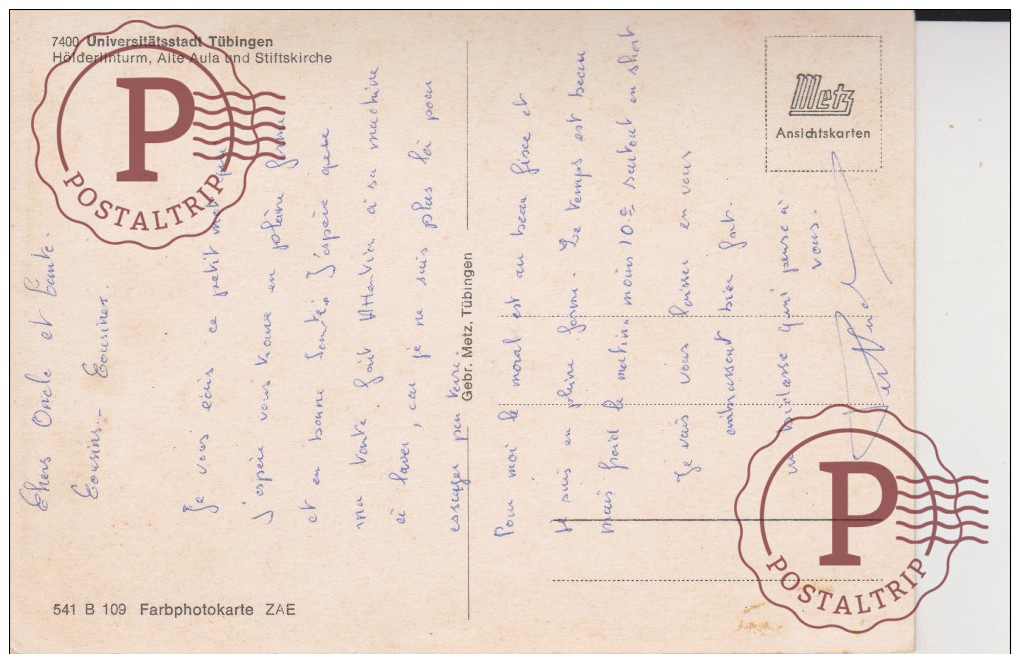 7400 Universitätsstadt Tübingen
Hölderlinturm, Alte Aula und Stiftskirche
Chers Oncle et Tante.
Cousins - Cousines.
Je vous écris ce petit mot
J'espère vous trouve en pleine forme
et en bonne Santé. J'espère que
ma Tante fait Attention à sa machine
à laver, car je ne suis plus là pour
essuyer par terre.
Pour moi le moral est au beau fixe et
je suis en pleine forme. Le temps est beau
mais froid le matin moins 10° surtout en short
Je vais vous laisser en vous
embrassant bien fort.
un bidasse qui pense à
vous.
Gebr. Metz, Tübingen
Metz
Ansichtskarten
541 B 109 Farbphotokarte ZAE
P
POSTALTRIP
P
POSTALTRIP